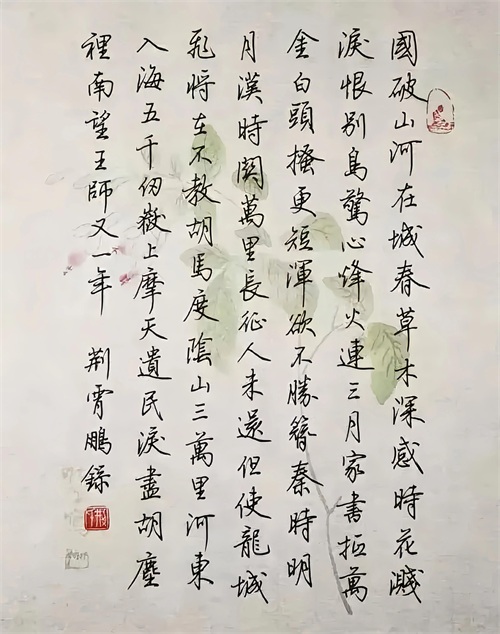 國破山河在城春草木深感時花濺
淚恨别鳥驚心烽火連三月家書抵萬
金白頭搔更短渾欲不勝簪秦時明
月漢時関萬里長征人未還但使龍城
飛將在不教胡馬度陰山三萬里河東
入海五千仞嶽上摩天遺民淚盡胡塵
裡南望王師又一年 荆霄鵬錄